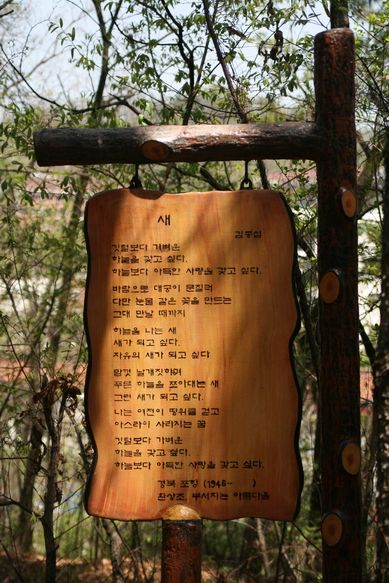 새
김종섭
깃털보다 가벼운
하늘을 갖고 싶다.
하늘보다 아득한 사랑을 갖고 싶다.
바람으로 대궁이 문질러
다만 눈물 같은 꽃을 만드는
그대 만날 때까지
하늘을 나는 새
새가 되고 싶다.
자유의 새가 되고 싶다
맘껏 날개짓하며
푸른 하늘을 쪼아대는 새
그런 새가 되고 싶다.
나는 여전히 땅위를 걷고
아스라이 사라지는 꿈
깃털보다 가벼운
하늘을 갖고 싶다.
하늘보다 아득한 사랑을 갖고 싶다.
경북 포항 (1946-- )
환상조, 부서지는 아름다움